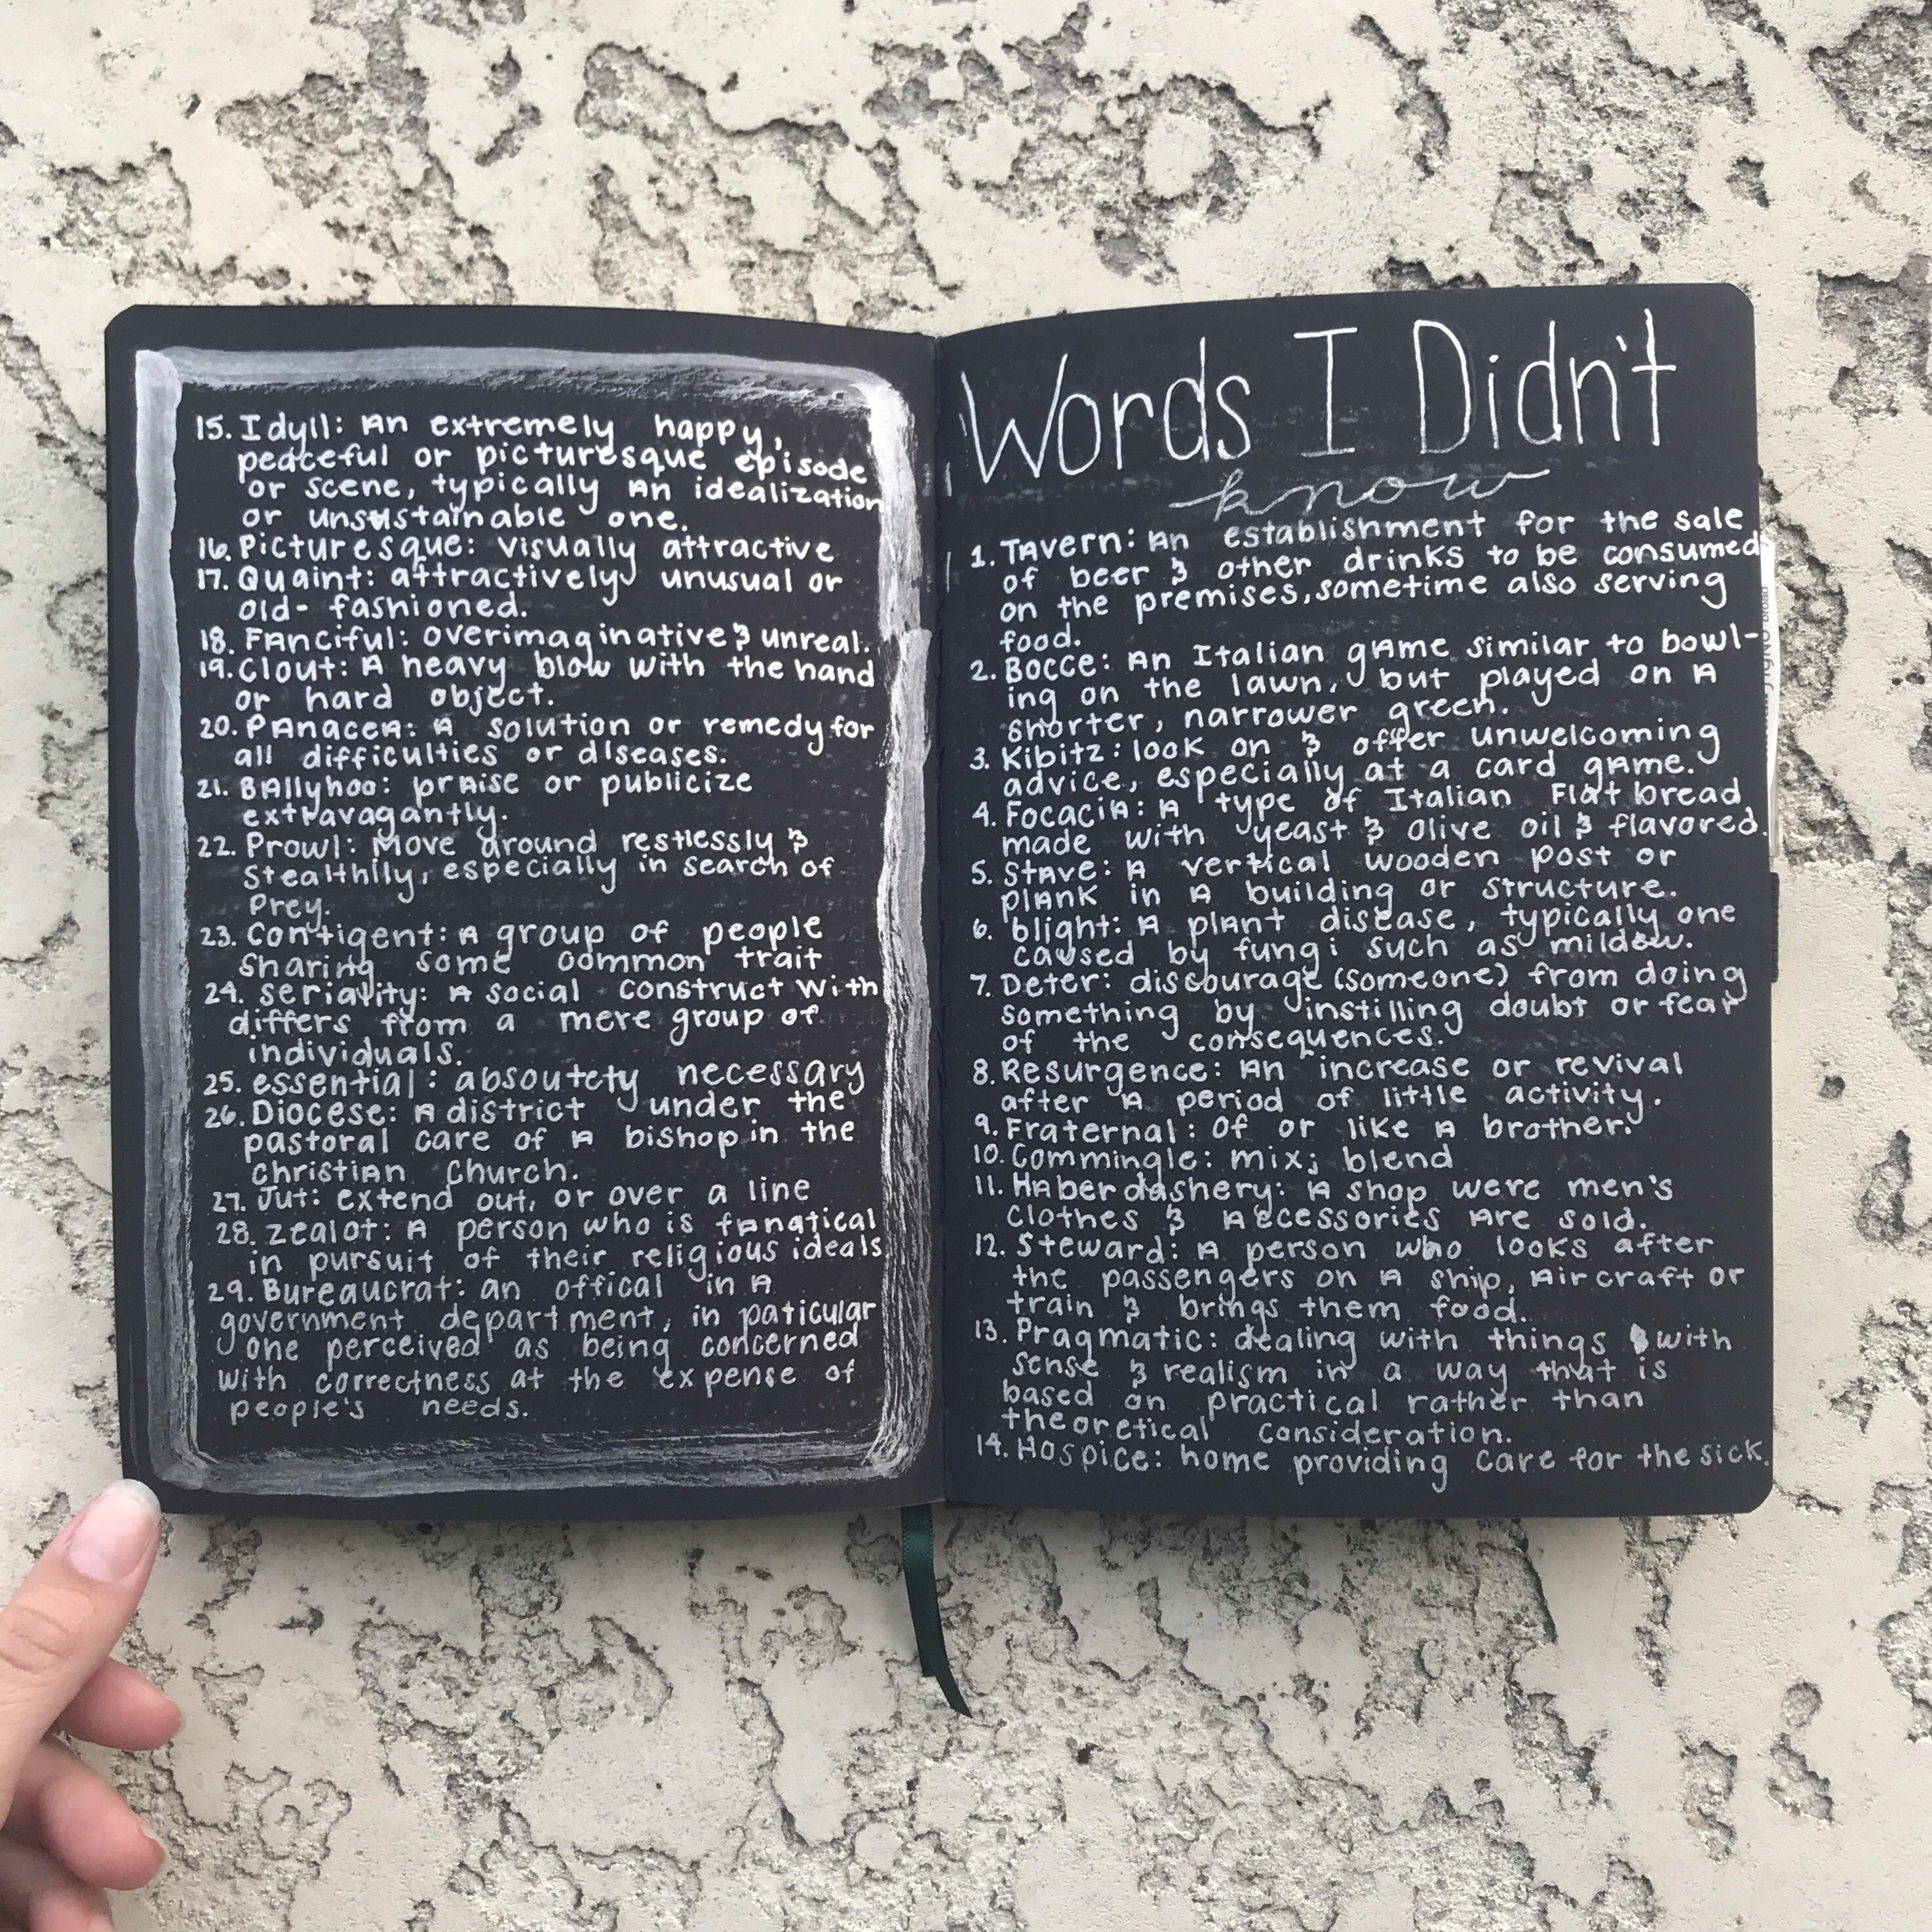 15. Idyll: An extremely happy,
peaceful or picturesque episode
or scene, typically an idealization
or unsustainable one.
16. Picturesque: visually attractive
17. Quaint: attractively unusual or
old-fashioned.
18. Fanciful: overimaginative & unreal.
19. Clout: A heavy blow with the hand
or hard object.
20. Panacea: A solution or remedy for
all difficulties or diseases.
21. Ballyhoo: praise or publicize
extravagantly.
22. Prowl: Move around restlessly &
Stealthily, especially in search of
Prey.
23. Contigent: A group of people
sharing some common trait
24. seriality: A social construct with
differs from a mere group of
individuals.
25. essential: absoutety necessary
26. Diocese: A district under the
pastoral care of A bishop in the
Christian Church.
27. Jut: extend out, or over a line
28. zealot: A person who is fanatical
in pursuit of their religious ideals
29. Bureaucrat: an offical in A
government department, in paticular
one perceived as being concerned
with correctness at the expense of
people's needs.
Words I Didn't
know
1. Tavern: An establishment for the sale
of beer & other drinks to be consumed
on the premises, sometime also serving
food.
2. Bocce: An Italian game similar to bowl-
ing on the lawn, but played on A
shorter, narrower green.
3. Kibitz: look on & offer unwelcoming
advice, especially at a card game.
4. Focacia: A type of Italian Flat bread
made with yeast & olive oil & flavored.
5. Stave: A vertical wooden post or
plank in A building or structure.
6. blight: A plant disease, typically one
caused by fungi such as mildew.
7. Deter: discourage (someone) from doing
something by instilling doubt or fear
of the consequences.
8. Resurgence: An increase or revival
after A period of little activity.
9. Fraternal: of or like A brother.
10. Commingle: mix; blend
11. Haberdashery: A shop were men's
clothes & accessories are sold.
12. Steward: A person who looks after
the passengers on A ship, Aircraft or
train & brings them food.
13. Pragmatic: dealing with things with
sense & realism in a way that is
based on practical rather than
theoretical consideration.
14. Hospice: home providing care for the sick.